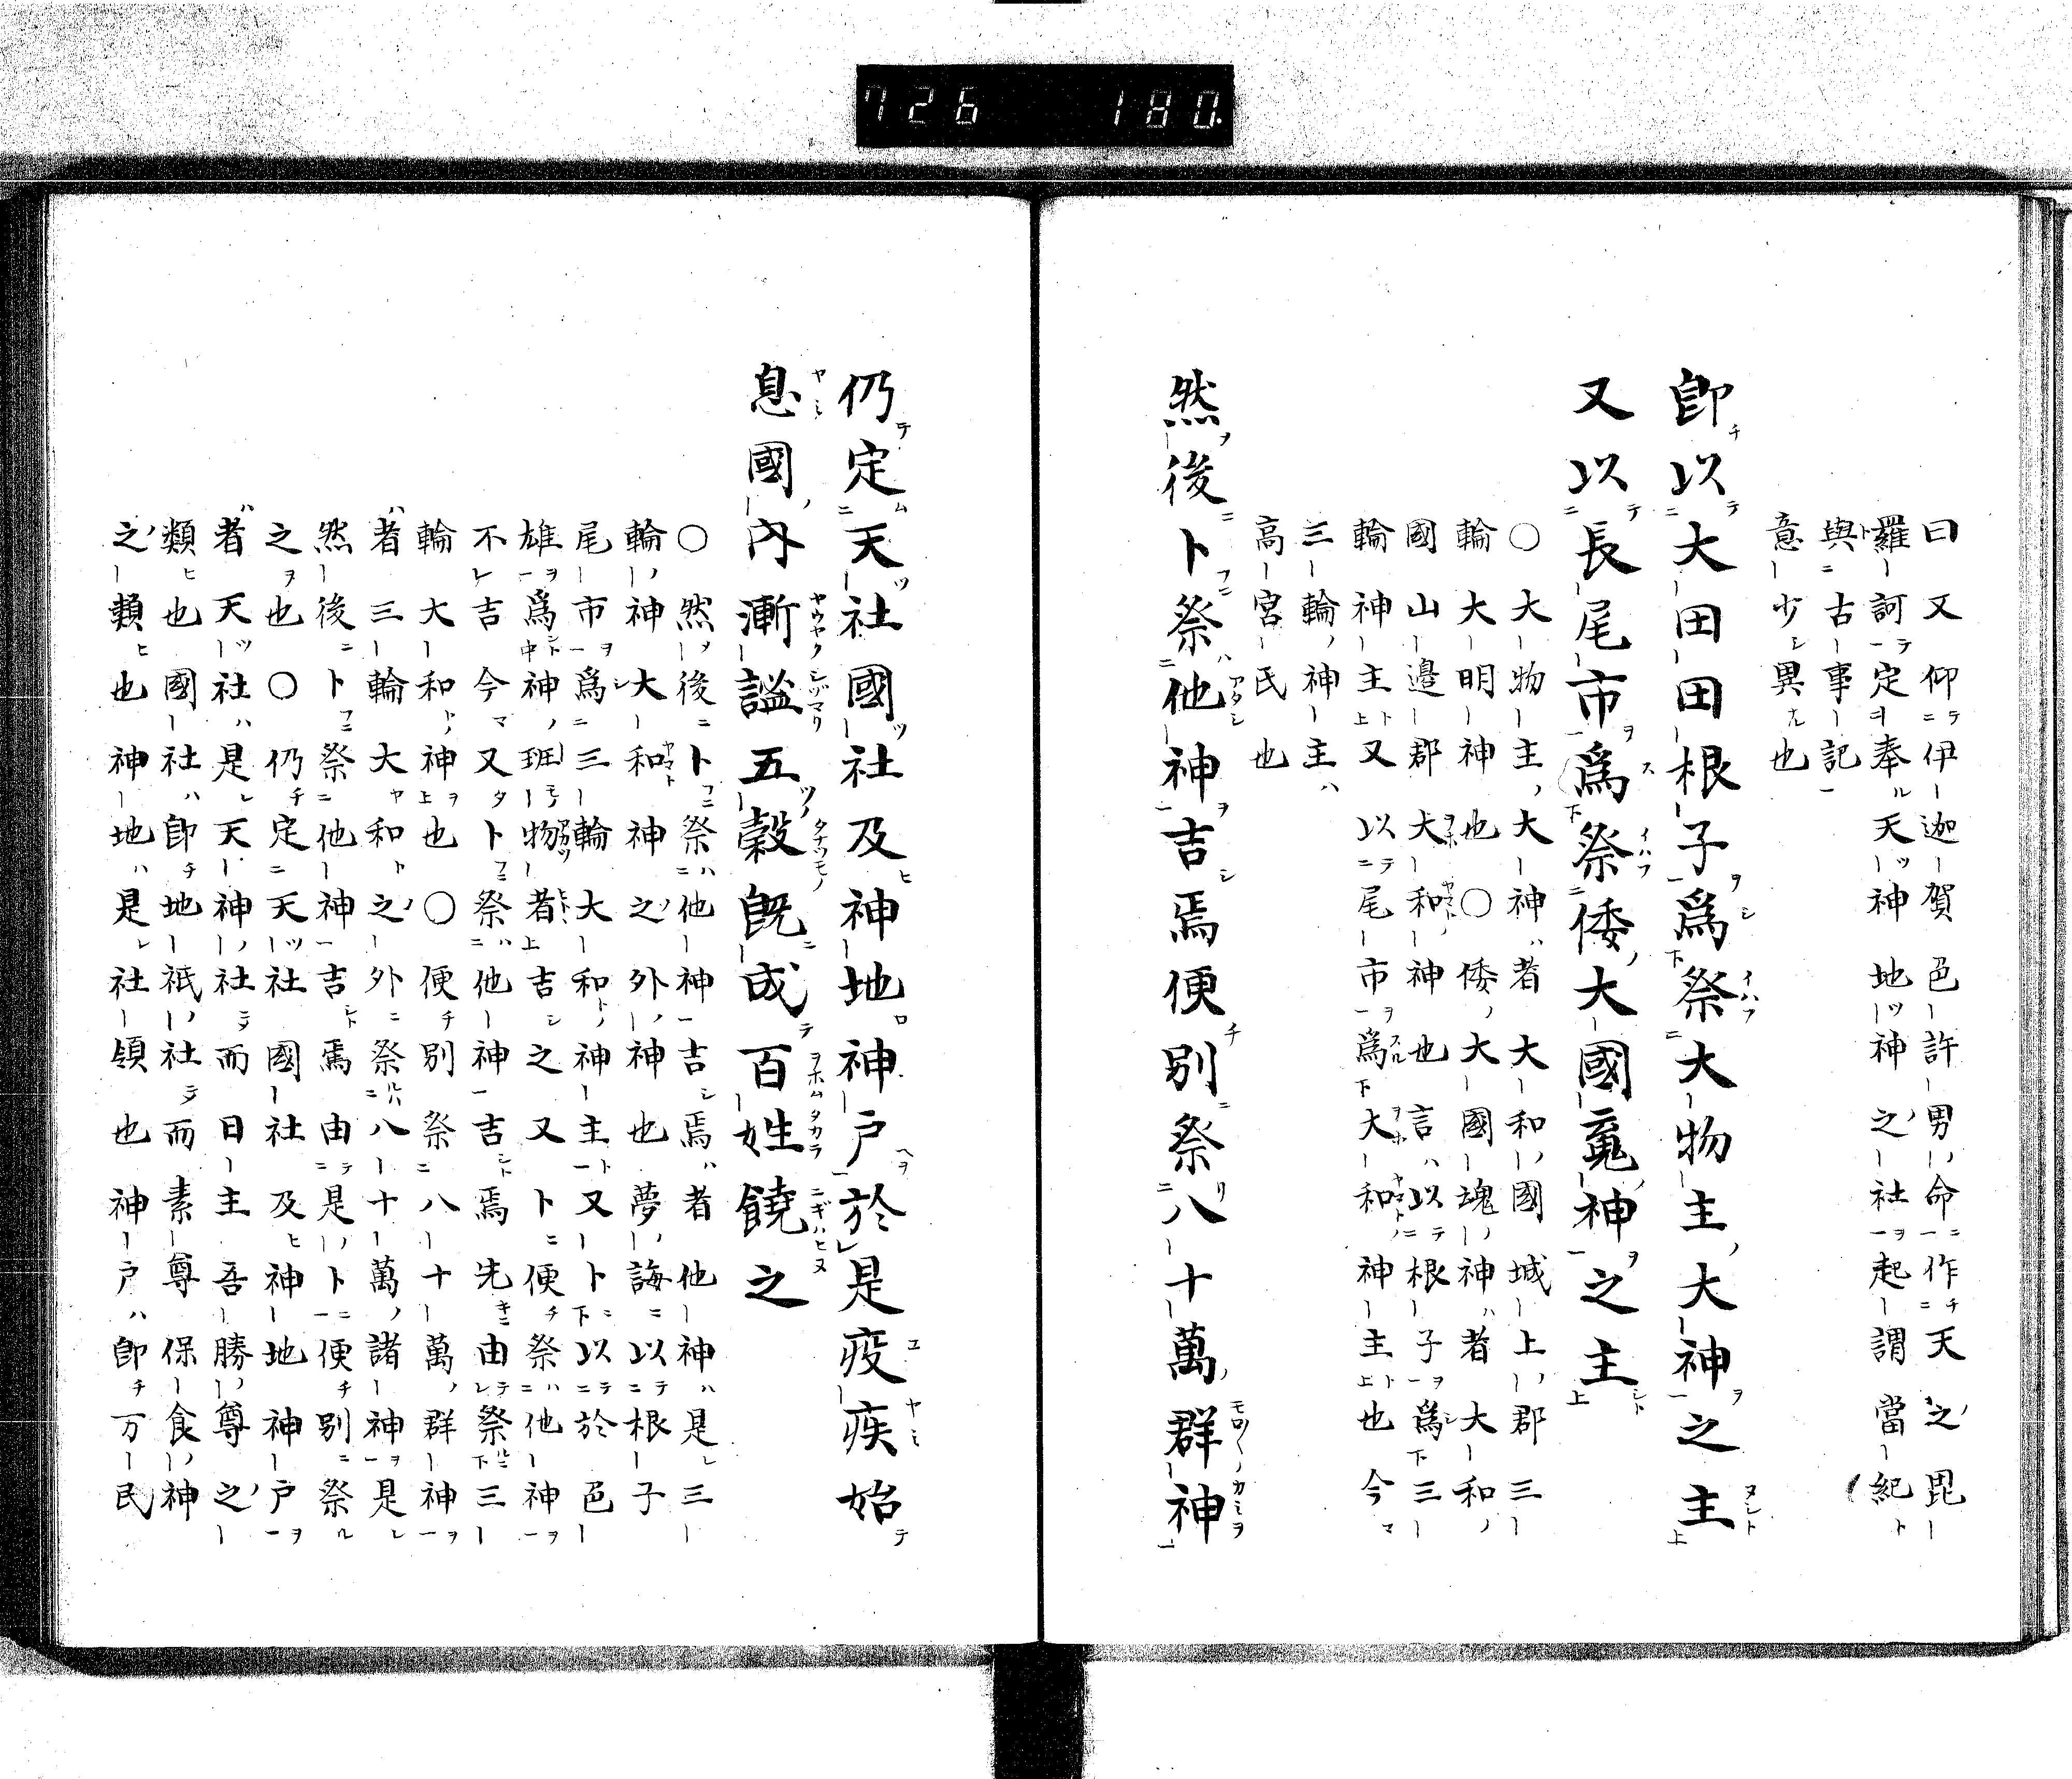 726 180.
曰又仰伊迦賀色許男命作天之毘
羅訶定奉天神地神之社起謂當紀
與古事記
意少異也
卽以大田田根子爲祭大物主大神之主
又以長尾市爲祭倭大國䰟神之主
○大物主大神者大和國城上郡三
輪大明神也○倭大國魂神者大和
國山邊郡大和神也言以根子爲三
輪神主又以尾市爲大和神主也今
三輪神主
高宮氏也
然後卜祭他神吉焉便別祭八十萬群神
仍定天社國社及神地神戸於是疫疾始
息國內漸謐五穀旣成百姓饒之
○然後卜祭他神吉焉者他神是三
輪神大和神之外神也夢誨以根子
尾市爲三輪大和神主又卜以於色
雄爲神班物者吉之又卜便祭他神
不吉今又卜祭他神吉焉先由祭三
輪大和神也○便別祭八十萬群神
者三輪大和之外祭八十萬諸神是
然後卜祭他神吉焉由是卜便別祭
之也○仍定天社國社及神地神戸
者天社是天神社而日主吾勝尊之
類也國社卽地祇社而素尊保食神
之類也神地是社領也神戸卽万民